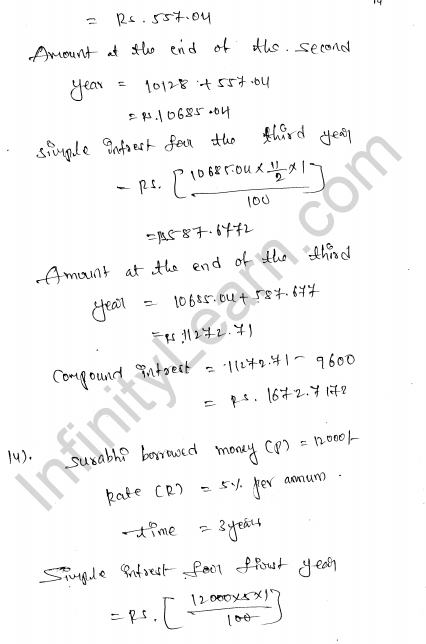 14
= Rs. 557.04
Amount at the end of the second
year = 10128 + 557.04
= Rs.10685.04
Simple intrest foor the third year
= Rs. [10685.04 × 11/2 × 1 / 100]
= Rs587.6772
Amount at the end of the third
year = 10685.04 + 587.677
= Rs.11272.71
Compound intrest = 11272.71 - 9600
= Rs. 1672.7172
14). Surabhi borrowed money (P) = 12000/-
Rate (R) = 5% per annum.
Time = 3 years
Simple intrest foor first year
= Rs. [12000×5×1 / 100]
InfinityLearn.com